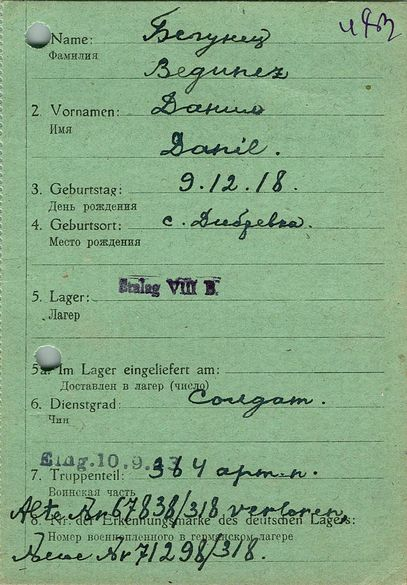 Name: Бегунец
Фамилия
Bedinez
2. Vornamen: Данило
Имя
Danil.
3. Geburtstag: 9.12.18.
День рождения
4. Geburtsort: с. Дибревка.
Место рождения
5. Lager: Stalag VIII B.
Лагерь
5a. Im Lager eingeliefert am:
Доставлен в лагерь (число)
6. Dienstgrad: Солдат.
Чин
Eing. 10. 9.
7. Truppenteil: 384 арт.п.
Воинская часть
Alte Nr 67838/318 verloren
8. Nr. der Erkennungsmarke des deutschen Lagers:
Номер военнопленного в германском лагере
Neue Nr 71298/318.